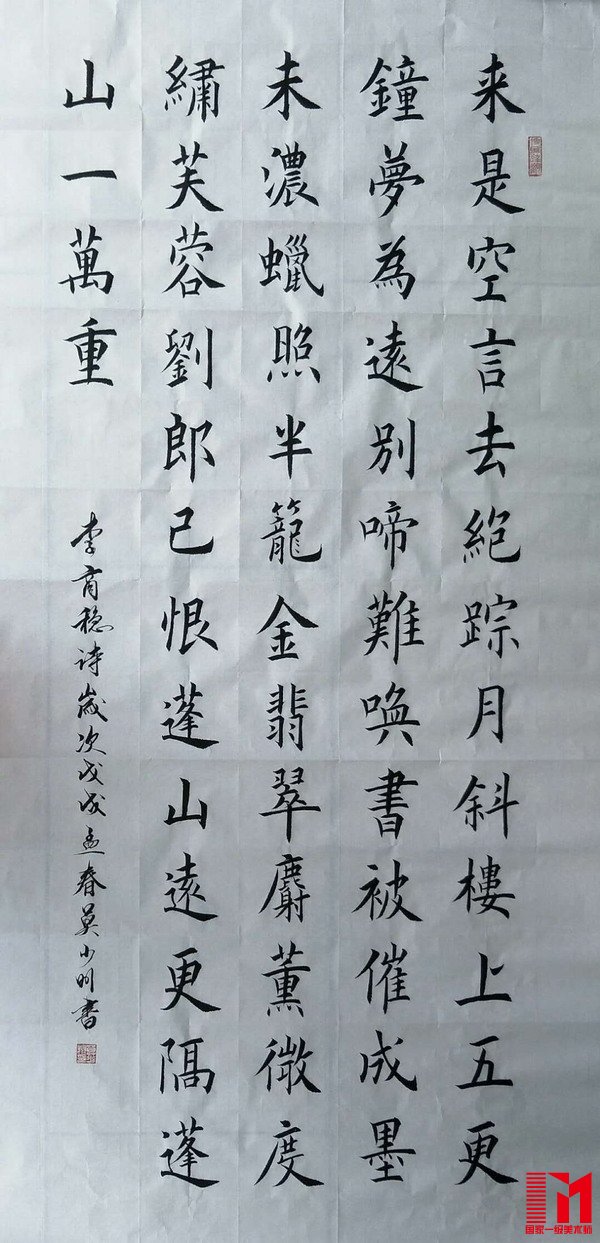 来是空言去絶踪月斜樓上五更
鐘夢為遠別啼難喚書被催成墨
未濃蠟照半籠金翡翠麝薰微度
繡芙蓉劉郎已恨蓬山遠更隔蓬
山一萬重
李商隐诗歲次戊戌孟春莫小明書
国家一级美术师